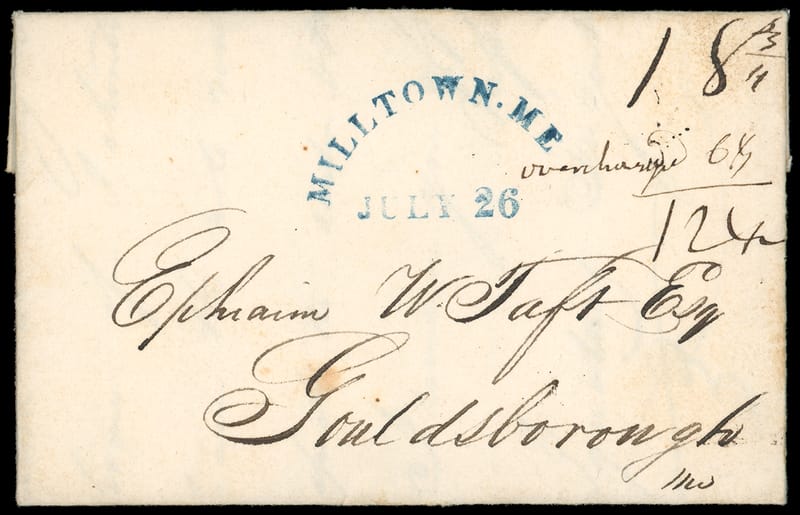 MILLTOWN. ME
JULY 26
18 3/4
overcharged 6 1/4
12 1/2
Ephraim W. Taft Esq
Gouldsborough
Me